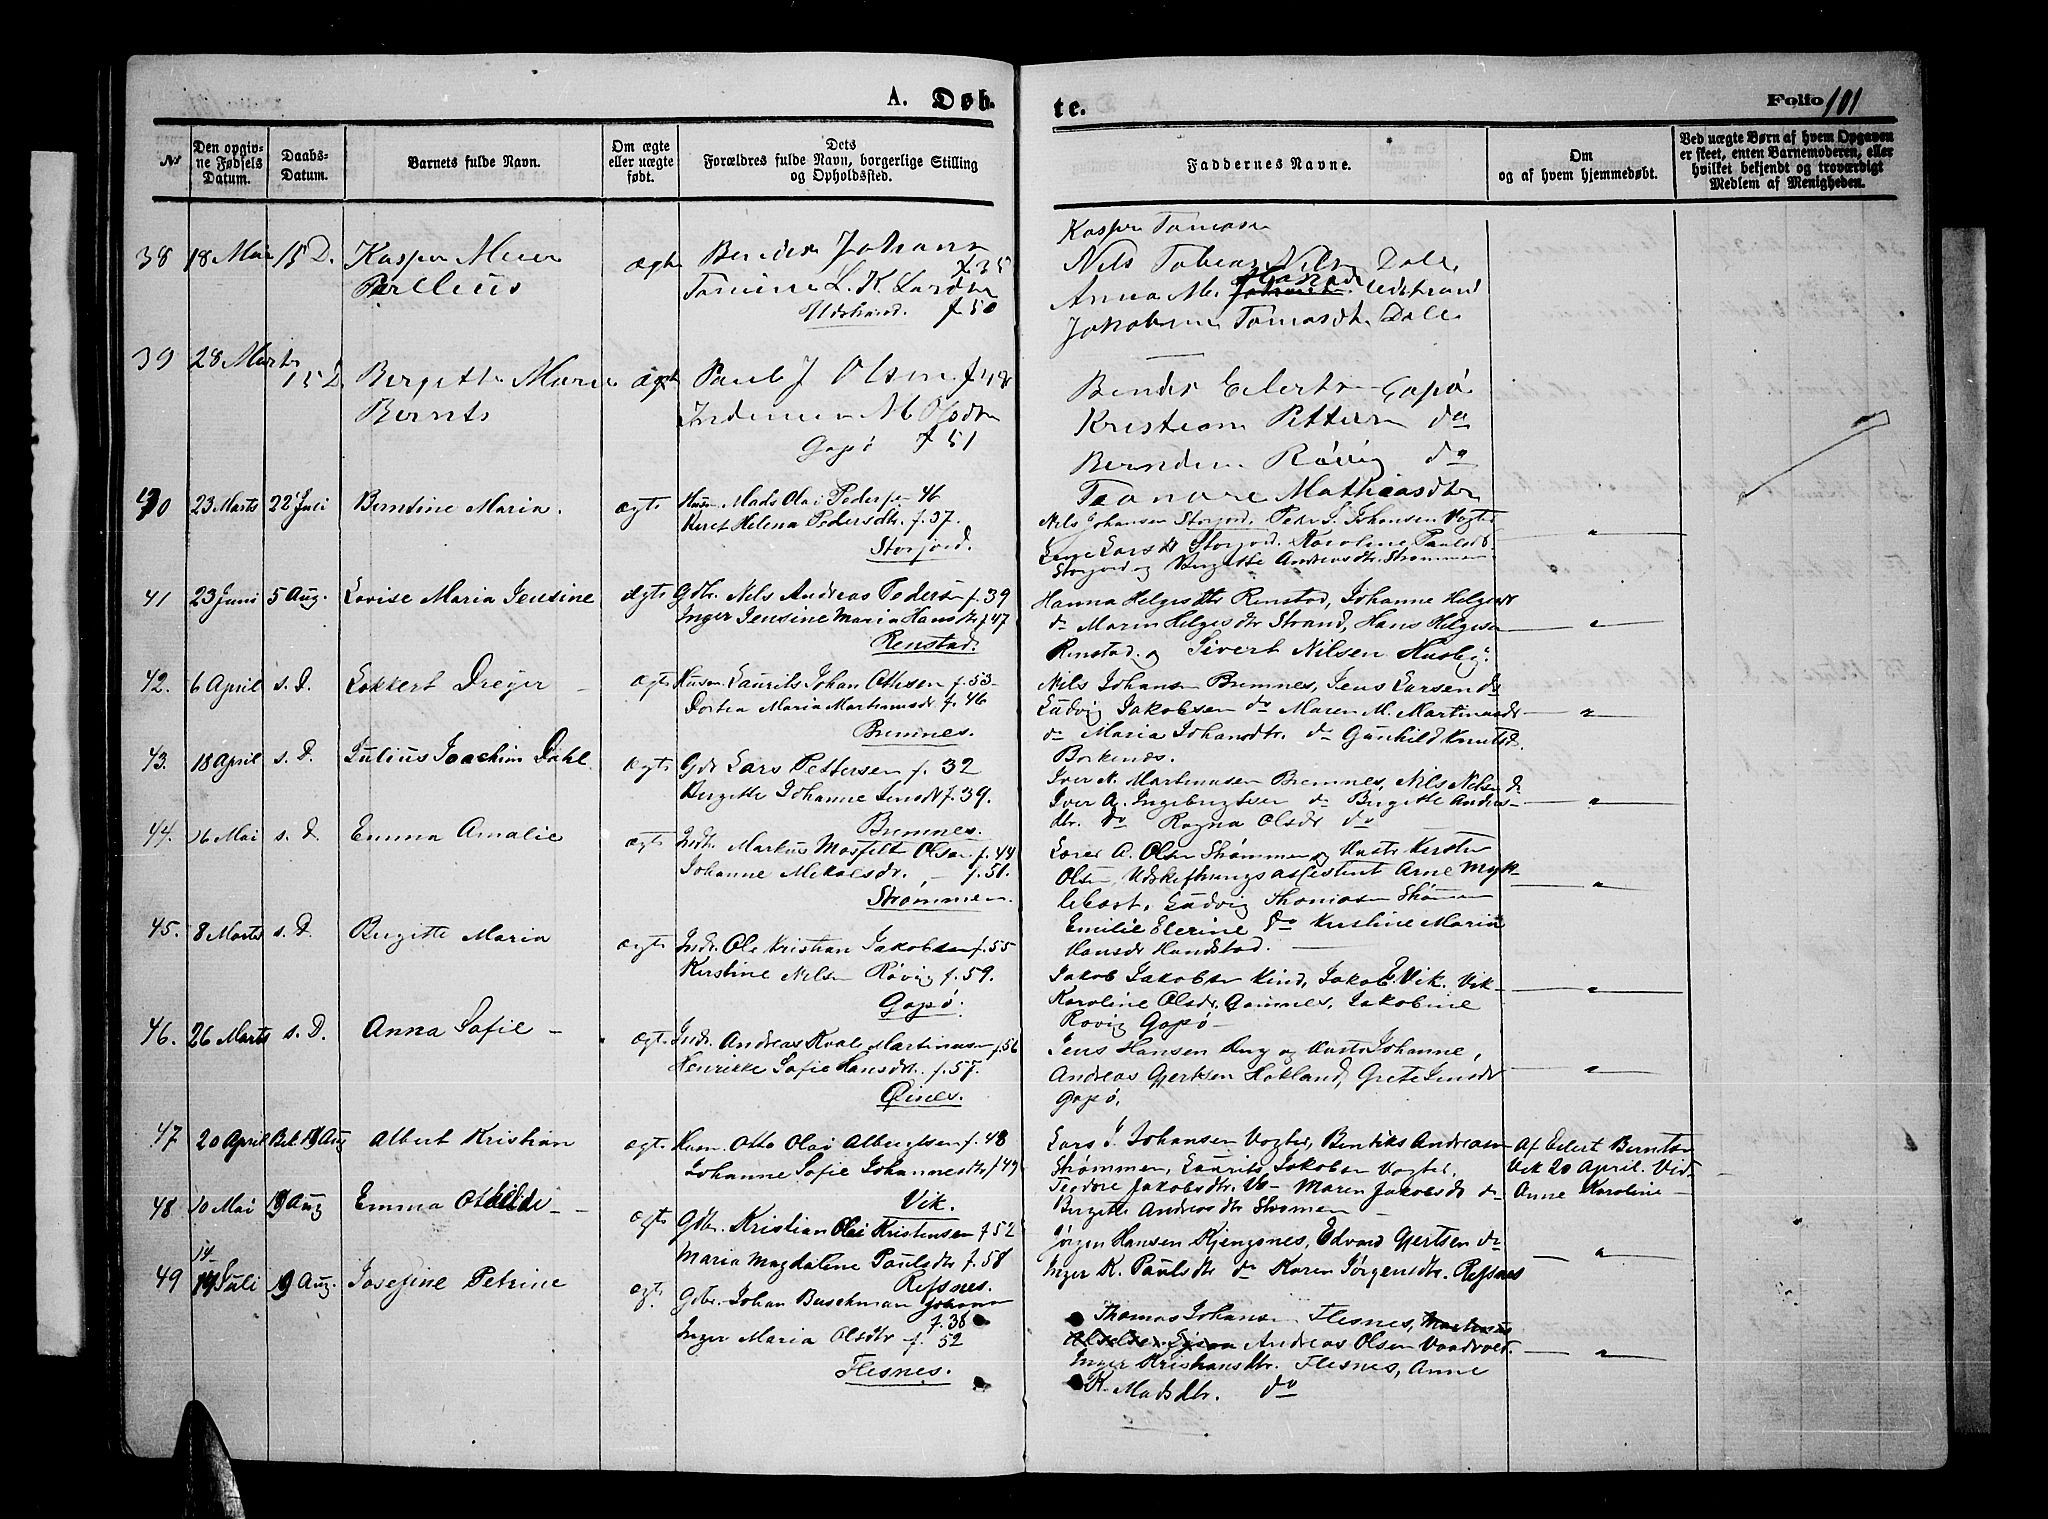 A. Døb.
te.
Folio 101
Nr
Den opgiv-
ne Fødsels
Datum.
Daabs-
Datum.
Barnets fulde Navn.
Om ægte
eller uægte
født.
Dets
Forældres fulde Navn, borgerlige Stilling
og Opholdssted.
Faddernes Navne.
Om
og af hvem hjemmedøbt.
Ved uægte Børn af hvem Opgaven
er skeet, enten Barnemoderen, eller
hvilket bekjendt og troværdigt
Medlem af Menigheden.
38 18 Mai 15 D.
ægte
Johans
f. 35
f. 50
Kasper
Nils Tobias Nilsen Dale
Anna M.
Dale
39 28 Marts 15 D
Bergitte Marie
Bernts
ægte
Paul J Olsen f 48
Gapø f 51
Gapø
Kristian Petters do
Røvig do
Mathiasdtr
40 23 Marts 22 Juli Berntine Maria. ægte
Husm. Mads Olai Pedersen 46
Beret Helena Pedersdtr. f. 37.
Storjord.
Nils Johansen Storjord, Peder L. Johansen Vogter
Larsdtr Storjord, Karoline
Storjord og Bergitte Andreasdtr. Strømmen
41 23 Juni 5 Aug. Lovise Maria Jensine ægte
Gdbr. Nils Andreas Pedersen f. 39
Inger Jensine Maria Hansdtr f. 47
Renstad.
Hanna Helgesdtr Renstad, Johanne Helgesdtr
do Maren Helgesdtr Strand, Hans Helgesen
Renstad og Sivert Nilsen Husby.
42. 6 April s. D. Lokkert Dreyer ægte
Husm. Laurits Johan Othesen f. 53
Dortea Maria Martinusdtr f. 46
Bremnes.
Nils Johansen Bremnes, Jens Larsen do
Ludvig Jakobsen do Maren M. Martinusdtr
do Maria Johansdtr. do Gunhild Knutsd.
Borkenes.
43. 18 April s. D. Julius Joachim Dahl. ægte
Gdbr Lars Pettersen f. 32
Bergitte Johanne Jensdtr f. 39.
Bremnes.
Iver N. Martinusen Bremnes, Nils Nilsen do
Iver A. Ingebrigtsen do Birgitte Andreas-
dtr. do Ragna Olsdtr do
44. 16 Mai s. D Emma Amalie ægte
Indr. Markus Mosfelt Olsen f. 44
Johanne Mikalsdtr. f. 51.
Strømmen.
A. Olsen Strømmen og Hustr Kirsten
Olsen, Udskiftningsassistent Arne Myk-
lebost, Ludvig Thomasen Strømmen
Emilie Elerine do Kristine Maria
Hansdr Handstad.
45. 8 Marts s. D. Birgitte Maria ægte
Indr. Ole Kristian Jakobsen f. 55
Kirstine Nilsen Røvig f. 59.
Gapø.
Jakob Jakobsen Kind, Jakob E. Vik. Vik
Karoline Olsdr. Gamnes, Jakobine
Røvig Gapø
46. 26 Marts s. D. Anna Sofie ægte
Indr. Andreas Kvale Martinusen f. 56
Henrikke Sofie Hansdtr. f. 57.
Øines.
Jens Hansen og Hustr Johanne,
Andreas Gjertsen Hokland, Grete Jensdr
Gapø.
47 20 April 19 Aug Albert Kristian ægte
Husm. Otto Olai Albergtsen f. 48
Johanne Sofie Johannesdtr f 49
Vik.
Lars J. Johansen Vogter, Bentiks Andreasen
Strømmen, Laurits Jakobsen Vogter,
Teodore Jakobsdtr. Maren Jakobsdtr do
Birgitte Andreasdtr Strømmen
Af Eilert Berntsen
Vik 20 April. Vid.
Anne Karoline
48 10 Mai 19 Aug Emma ægte
Gdbr. Kristian Olai Kristensen f 52
Maria Magdalene Paulsdtr f. 58
Refsnes.
Jørgen Hansen Kjengsnes, Edvard Gjertsen do
Inger K. Paulsdtr do Karen Jørgensdtr. Refsnes
49 14 Juli 19 Aug. Josefine Petrine ægte
Gdbr. Johan Buschman Johansen
f. 38
Inger Maria Olsdtr f. 52
Flesnes.
Thomas Johansen Flesnes,
Andreas Olsen
Inger Kristiansdtr. Flesnes, Anne
K. Madsdtr. do